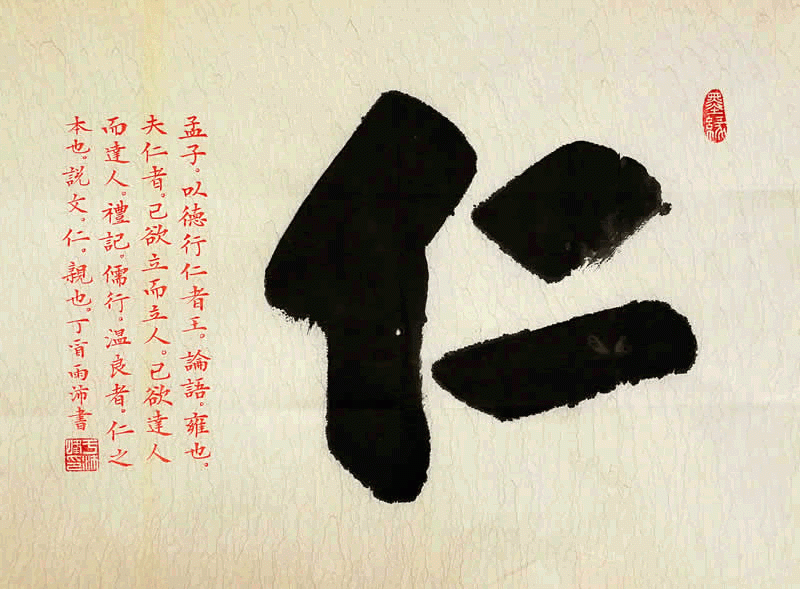 墨緣
仁
孟子。以德行仁者王。論語。雍也。
夫仁者。己欲立而立人。己欲達人
而達人。禮記。儒行。温良者。仁之
本也。説文。仁。親也。丁酉雨沛書